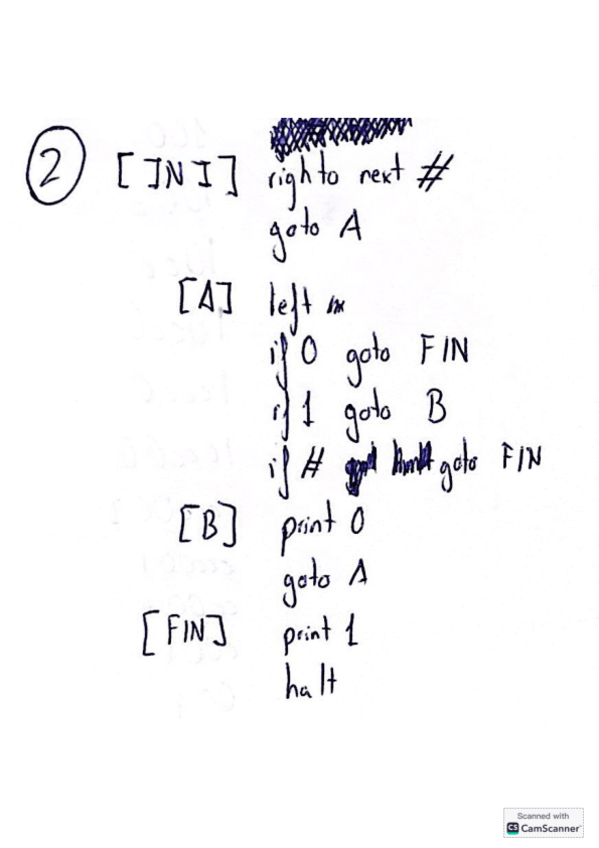 2 [INI] right to next #
goto A
[A] left
if 0 goto FIN
if 1 goto B
if # goto FIN
[B] print 0
goto A
[FIN] print 1
halt
Scanned with
CS CamScanner